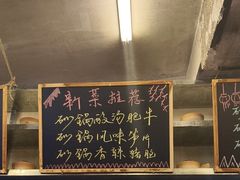 新菜推荐
砂锅酸汤肥牛
砂锅风味牛片
砂锅香辣猪肥